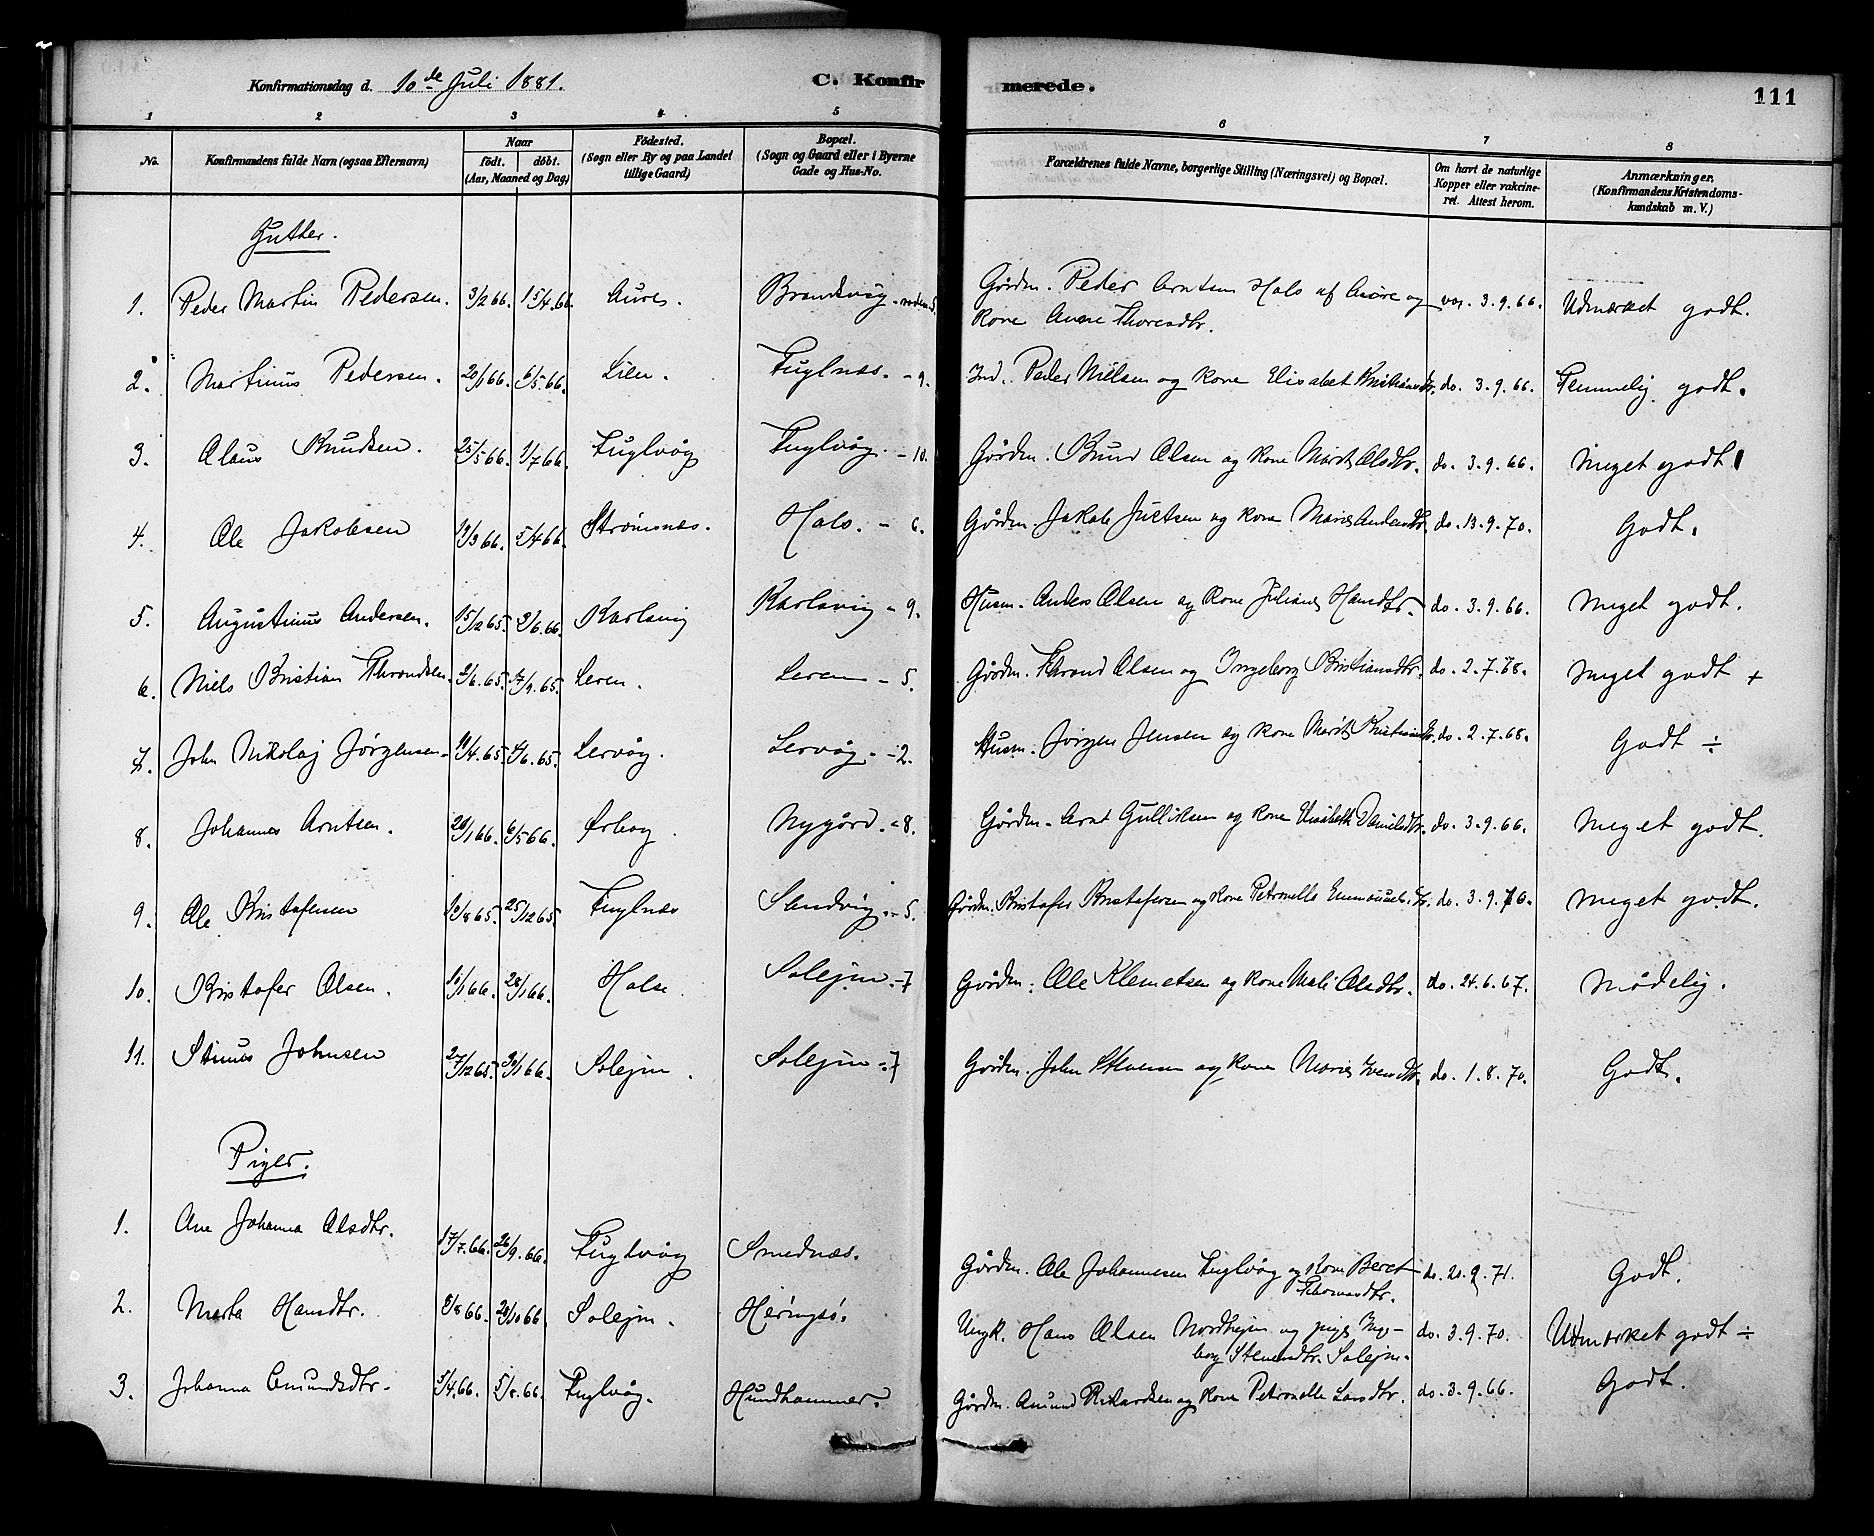 Konfirmationsdag d. 10de Juli 1881.
C. Konfirmerede.
111
1 2 3 4 5 6 7 8
No.
Konfirmandens fulde Navn (ogsaa Efternavn)
Naar
født. døbt.
(Aar, Maaned og Dag)
Fødested.
(Sogn eller By og paa Landet
tillige Gaard)
Bopæl.
(Sogn og Gaard eller i Byerne
Gade og Hus-No.
Forældrenes fulde Navne, borgerlige Stilling (Næringsvei) og Bopæl.
Om havt de naturlige
Kopper eller vakcine-
ret. Attest herom.
Anmærkninger.
(Konfirmandens Kristendoms-
kundskab m. V.)
Gutter.
1. Peder Martin Pedersen. 3/2 66. 15/4 66 Aure. Brandvåg Gårdm. Peder Arntsen Hals af Aure og vac. 3.9.66. Udmærket godt.
kone Anne Thoresdtr.
2. Martinus Pedersen. 20/1 66. 6/5 66. Lien. Fuglnæs. - 9. Ind. Peder Nielsen og kone Elisabet Kristiansdtr. do. 3.9.66. Temmelig godt.
3. Olaus Knudsen. 25/5 66. 1/7 66. Fuglvåg Fuglvåg. - 10. Gårdm. Knud Olsen og kone Marit Olsdtr. do. 3.9.66. Meget godt
4. Ole Jakobsen 5/4 66. Strømsnæs. Hals. - 6. Gårdm. Jakob Justsen og kone Marit Andersdtr. do. 13.9.70. Godt.
5. Augustinus Andersen. 15/12 65. 2/6. 66. Karlsvig Karlsvig - 9. Husm. Anders Olsen og kone Juliane Hansdtr. do. 3.9.66. Meget godt.
6. Niels Kristian Throndsen. 2/6. 65. 17/9. 65. Leren. Leren - 5. Gårdm. Thrond Olsen og Ingeborg Kristiansdtr. do. 2.7.68. Meget godt +
7. John Nikolaj Jørgensen. Lervåg. Lervåg. - 2. Husm. Jørgen Jensen og kone Marit Kristiansdtr. do. 2.7.68. Godt ÷
8. Johannes Arntsen. 6/5 66. Ørbog. Nygård. - 8. Gårdm. Arnt Gulliksen og kone Elisabeth Danielsdtr. do. 3.9.66. Meget godt.
9. Ole Kristofersen 25/12 65. Fuglnæs Sandvig. - 5. Gårdm. Kristofer Kristofersen og kone Petronelle do. 3.9. Meget godt.
10. Kristofer Olsen. 28/1 66. Halse. Solejm. - 7 Gårdm. Ole Klemetsen og kone Mali Olsdtr. do. 24.6.67. Mådelig.
11. Johnsen 27/12 65. Solejm. Solejm - 7 Gårdm. John og kone Marit Iversdtr. do. 1.8.70. Godt.
Piger.
1. Ane Johanna Olsdtr. 17/7. 66. 26/9. 66. Fuglvåg Smednæs. Gårdm. Ole Johannesen Fuglvåg og kone Beret do. 20.9.71. Godt.
Thomasdtr.
2. Marta Hansdtr. 8/8 66. 28/10 66 Solejm. Herøngsø. Ungk. Hans Olsen Nordhejm og pige Inge- do. 3.9.70. Udmærket godt ÷
borg Solejm.
3. Johanna Amundsdtr. 3/4. 66. 5/8. 66. Fuglvåg. Hundhammer. Gårdm. Amund Rikardsen og kone Petronelle Larsdtr. do. 3.9.66. Godt.